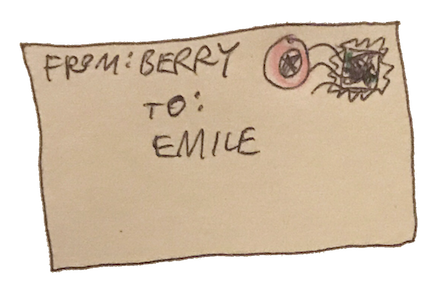 FROM: BERRY
TO:
EMILE